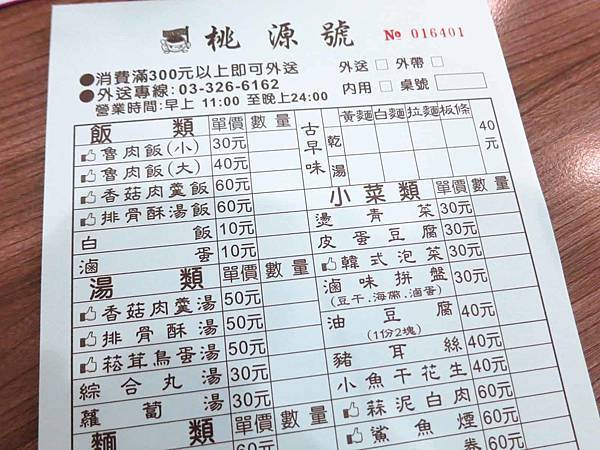 桃源號 № 016401
●消費滿300元以上即可外送 外送□ 外帶□
●外送專線: 03-326-6162 內用□ 桌號
營業時間:早上 11:00 至晚上24:00
飯類 單價 數量
魯肉飯(小) 30元
魯肉飯(大) 40元
香菇肉羹飯 60元
排骨酥湯飯 60元
白飯 10元
滷蛋 10元
湯類 單價 數量
香菇肉羹湯 50元
排骨酥湯 50元
菘茸鳥蛋湯 50元
綜合丸湯 30元
蘿蔔湯 30元
麵類 單價 數量
60元
古早味 黃麵 白麵 拉麵 板條 40元
乾
湯
小菜類 單價 數量
燙青菜 30元
皮蛋豆腐 30元
韓式泡菜 30元
滷味拼盤 30元
(豆干.海帶.滷蛋)
油豆腐 40元
(1份2塊)
豬耳絲 40元
小魚干花生 40元
蒜泥白肉 60元
鯊魚煙 60元
卷 60元